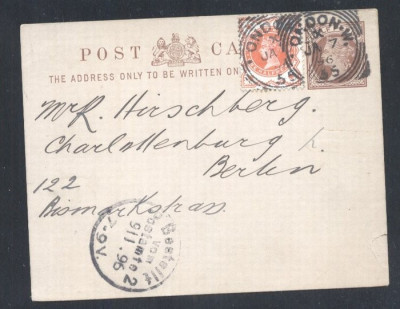 POST CA
THE ADDRESS ONLY TO BE WRITTEN ON
LONDON·W
X
7
JA
96
54
35
Mr R. Hirschberg.
Charlottenburg
Berlin
122
Bismarkstrass.
Bestellt
vom
Postamte 2
9 1 1. 96
7-9V.